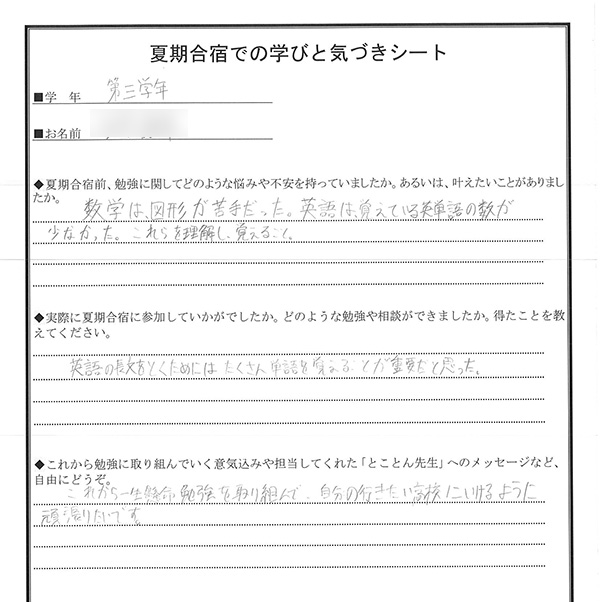 夏期合宿での学びと気づきシート
■学　年　第三学年
■お名前
◆夏期合宿前、勉強に関してどのような悩みや不安を持っていましたか。あるいは、叶えたいことがありまし
たか。
数学は、図形が苦手だった。英語は、覚えている英単語の数が
少なかった。これらを理解し、覚えること。
◆実際に夏期合宿に参加していかがでしたか。どのような勉強や相談ができましたか。得たことを教
えてください。
英語の長文をとくためにはたくさん単語を覚えることが重要だと思った。
◆これから勉強に取り組んでいく意気込みや担当してくれた「とことん先生」へのメッセージなど、
自由にどうぞ。
これから一生懸命勉強を取り組んで、自分の行きたい高校にいけるように
頑張りたいです。